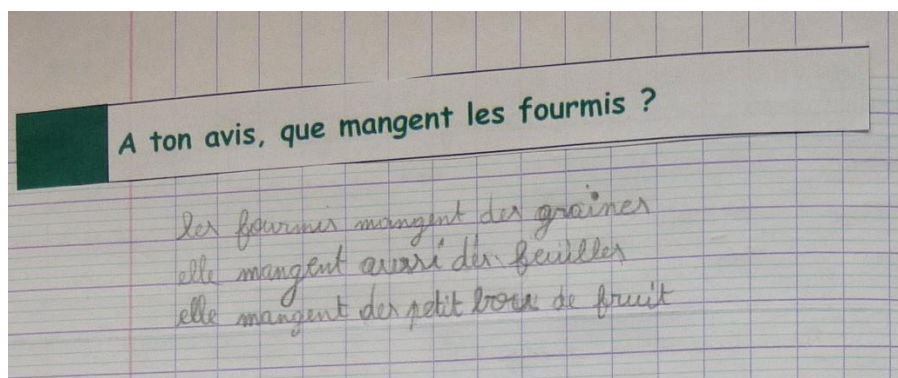 A ton avis, que mangent les fourmis ?
les fourmis mangent des graines
elle mangent aussi des feuilles
elle mangent des petit bout de fruit